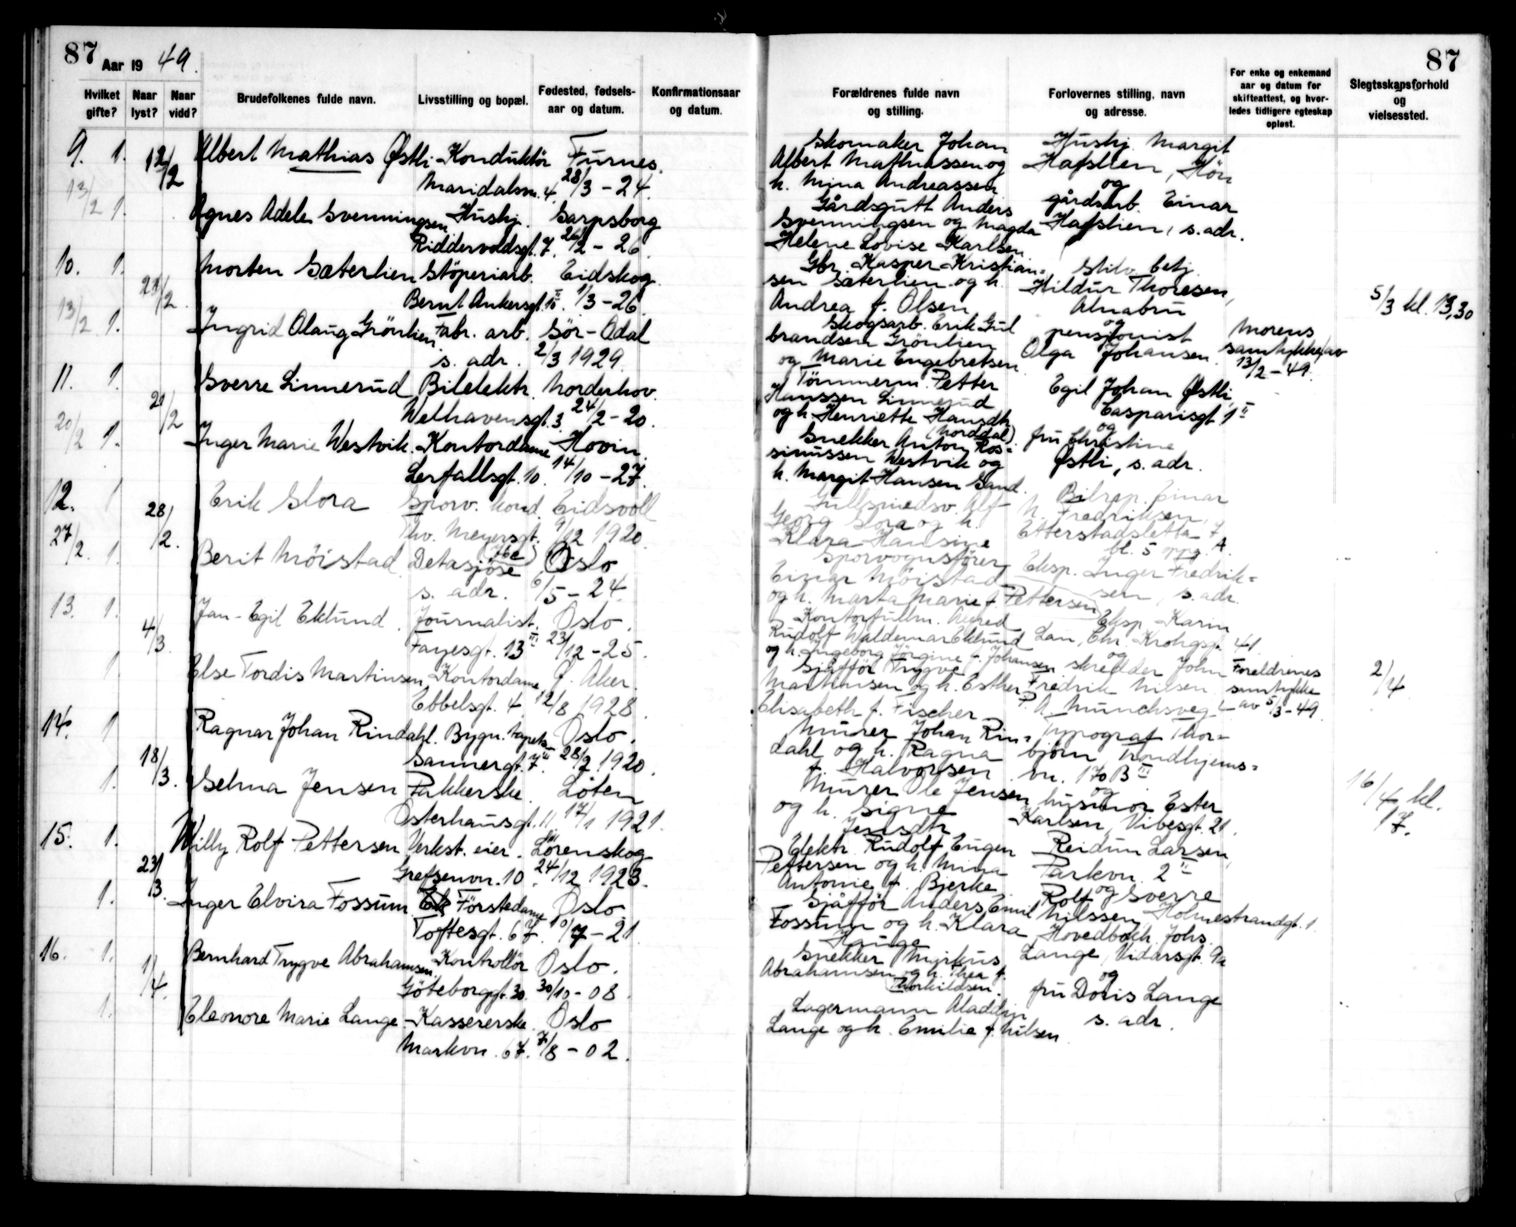 87
Aar 19 49.
Hvilket gifte?
Naar lyst?
Naar vidd?
Brudefolkenes fulde navn.
Livsstilling og bopæl.
Fødested, fødselsaar og datum.
Konfirmationsaar og datum.
87
Forældrenes fulde navn og stilling.
Forlovernes stilling, navn og adresse.
For enke og enkemand aar og datum for skifteattest, og hvorledes tidligere egteskap opløst.
Slegtsskapsforhold og vielsessted.
9. 1. 12/2 Albert Mathias Østli Konduktör Furnes.
Maridalsvn. 4. 28/3 - 24.
13/2 1. Agnes Adele Svenningsen Hushj. Sarpsborg
Riddervoldsgt. 7. 26/2 - 26.
Skomaker Johan
Albert Mathiassen og
h. Mina Andreassen
Gårdsgutt Anders
Svenningsen og Magda
Helene Lovise Karlsen
Hushj. Margit
Hafslien, Hön
og
gårdsarb. Einar
Hafslien, s. adr.
10. 1. 21/2 Morten Sæterlien Stöperiarb. Eidskog.
Bernt Ankersgt. 1/3 - 26.
13/2 1. Ingrid Olaug Grönlien Fabr. arb. Sör-Odal
s. adr. 2/3 1929.
Gbr. Kasper Kristian-
sen Sæterlien og h.
Andrea f. Olsen
Skogsarb. Erik Gul
brandsen Grönlien
og Marie Engebretsen
betj.
Hildur Thoresen,
Alnabru
og
pensjonist
Olga Johansen
Morens
samtykke av
13/2 - 49.
5/3 kl. 13,30
11. 1. 21/2 Sverre Linnerud Bilelektr. Norderhov.
Welhavensgt. 3. 24/2 - 20.
20/2 1. Inger Marie Westvik. Kontordame Hovin.
Lerfallsgt. 10. 14/10 - 27.
Tömmerm. Petter
Hanssen Linnerud
og h. Henriette Hansdtr.
(Norddal).
Snekker Anton Ras-
mussen Westvik og
h. Margit Hansen Sand.
Egil Johan Østli,
Casparisgt. 1 II
og
fru Christine
Østli, s. adr.
12. 1 28/2. Erik Slora Sporv. kond. Eidsvoll
Thv. Meyersgt. 9/12 1920.
27/2 1. Berit Möistad Detasjöse Oslo
s. adr. 6/5 - 24.
Gullsmedsv. Alf
Georg Slora og h.
Klara Hansine
Sporvognsfører
Einar Möistad
og h. Marta Marie f. Pettersen
Bilrep. Einar
N. Fredriksen,
Etterstadsletta 7
bl. 5 opg. A.
Eksp. Inger Fredrik-
sen, s. adr.
13. 1. 4/3. Jan-Egil Eklund. Journalist. Oslo.
Fayesgt. 13 III 23/12 - 25.
1 Else Tordis Martinsen Kontordame Ø. Aker.
Ebbelsgt. 4 12/8 1928.
Kontorfullm. Alfred
Rudolf Waldemar Eklund
og h. Ingeborg Jörgine f. Johansen
Sjåfför Trygve
Martinsen og h. Esther
Elisabeth f. Fischer
Eksp. Karin
Lau, Chr. Krohgsgt. 41
og
skredder John
Fredrik Nilsen
P. A. Munchsveg
Foreldrenes
samtykke
av 5/3 - 49.
2/4
14. 1 18/3. Ragnar Johan Rindahl. Bygn. tapets. Oslo.
Sannergt. 7 III 28/2 1920.
1. Selma Jensen Pakkerske. Löten
Osterhausgt. 11 17/1 1921.
Murer Johan Rin-
dahl og h. Ragna
f. Halvorsen
Murer Ole Jensen
og h. Signe
Jensdtr.
Typograf Thor-
björn Trondhjems-
vn. 170 B III
og
husmor Ester
Karlsen, Vibesgt. 21.
16/4 kl.
17.
15. 1. 23/3. Willy Rolf Pettersen Verkst. eier. Lörenskog
Grefsenvn. 10. 24/12 1923.
1. Inger Elvira Fossum Förstedame Oslo
Toftesgt. 67. 10/7 - 21.
Elektr. Rudolf Eugen
Pettersen og h. Minga
Antonie f. Bjerke
Sjåfför Anders Emil
Fossum og h. Klara
Hauge
Reidun Larsen,
Parkvn. 2 II
og
Rolf Sverre
Nilssen, Holmestrandgt. 1.
16. 1. 1/4. Bernhard Trygve Abrahamsen Kontrollör Oslo.
Göteborggt. 30. 30/10 - 08.
1. Eleonore Marie Lange. Kassererske. Oslo
Markvn. 67. 7/8 - 02.
Snekker Markus
Abrahamsen og h. Thea f.
Torkildsen.
Lagermann Aladdin
Lange og h. Emilie f. Nilsen
Hovedbokh. Johs.
Lange, Vidarsgt. 9a
og
fru Doris Lange
s. adr.